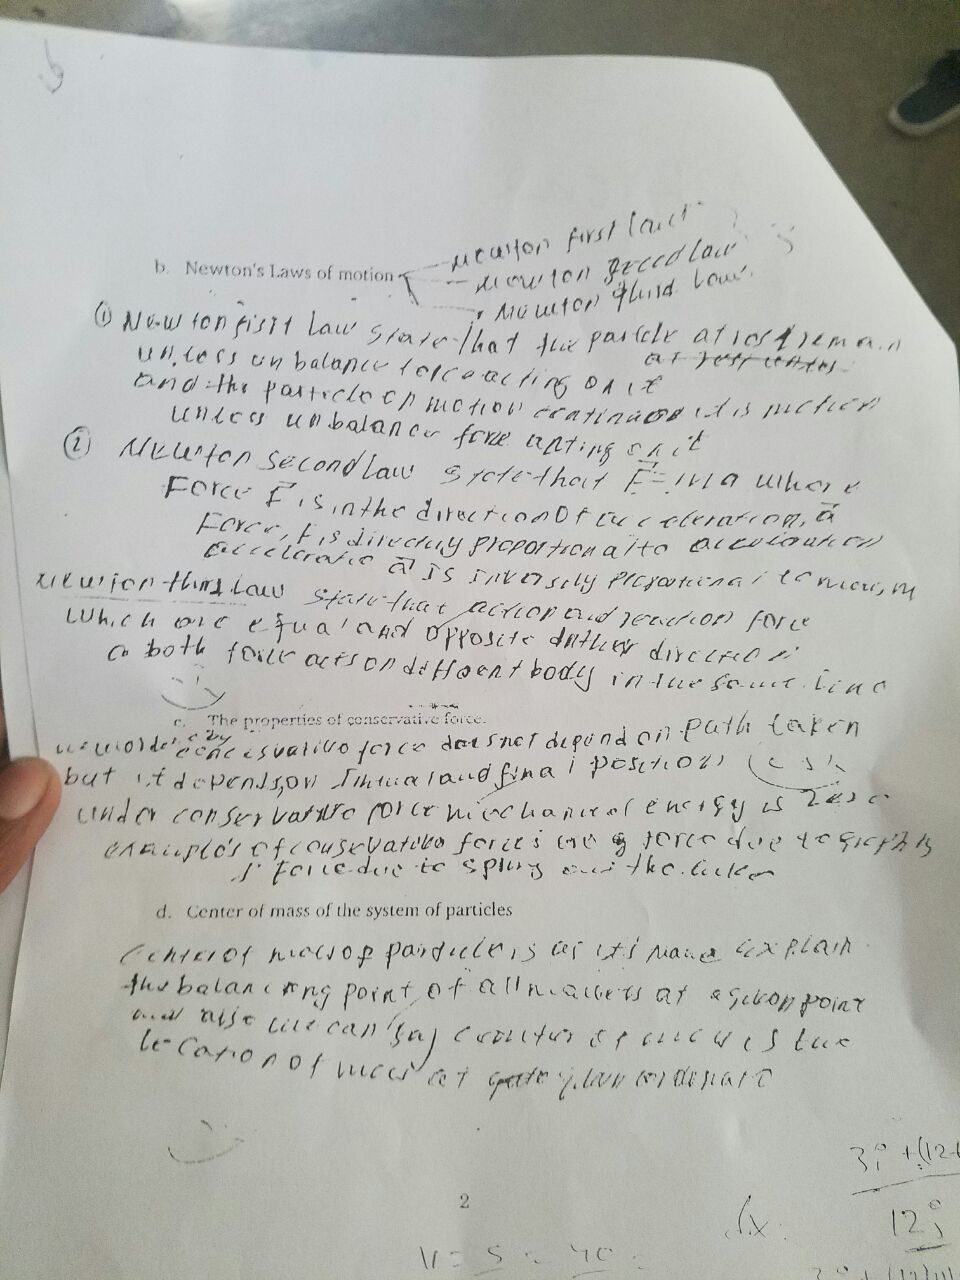 b. Newton's Laws of motion
Newton first law
Newton second law
Newton third law
① Newton first law state that the particle at rest remain
unless un balance force acting on it
and the particle on motion continuous it is motion
unless unbalance force acting on it
② Newton second law state that F = ma where
Force F is in the direction of acceleration, a
Force, F is directly proportional to acceleration
acceleratio a is inversely proportional to mass, m
Newton third law state that action and reaction force
which are equal and opposite direction
both force acts on different body in the same line
c. The properties of conservative force.
work done by conservative force does not depend on path taken
but it depends on initial and final position
under conservative force mechanical energy is zero
examples of conservative force is force due to gravity
force due to spring and the
d. Center of mass of the system of particles
Center of mass of particle is as its name explain
the balancing point of all masses at a given point
and also we can say center of mass is the
location of mass at
2
3i + (12
12j
fx
V = 5 = 40